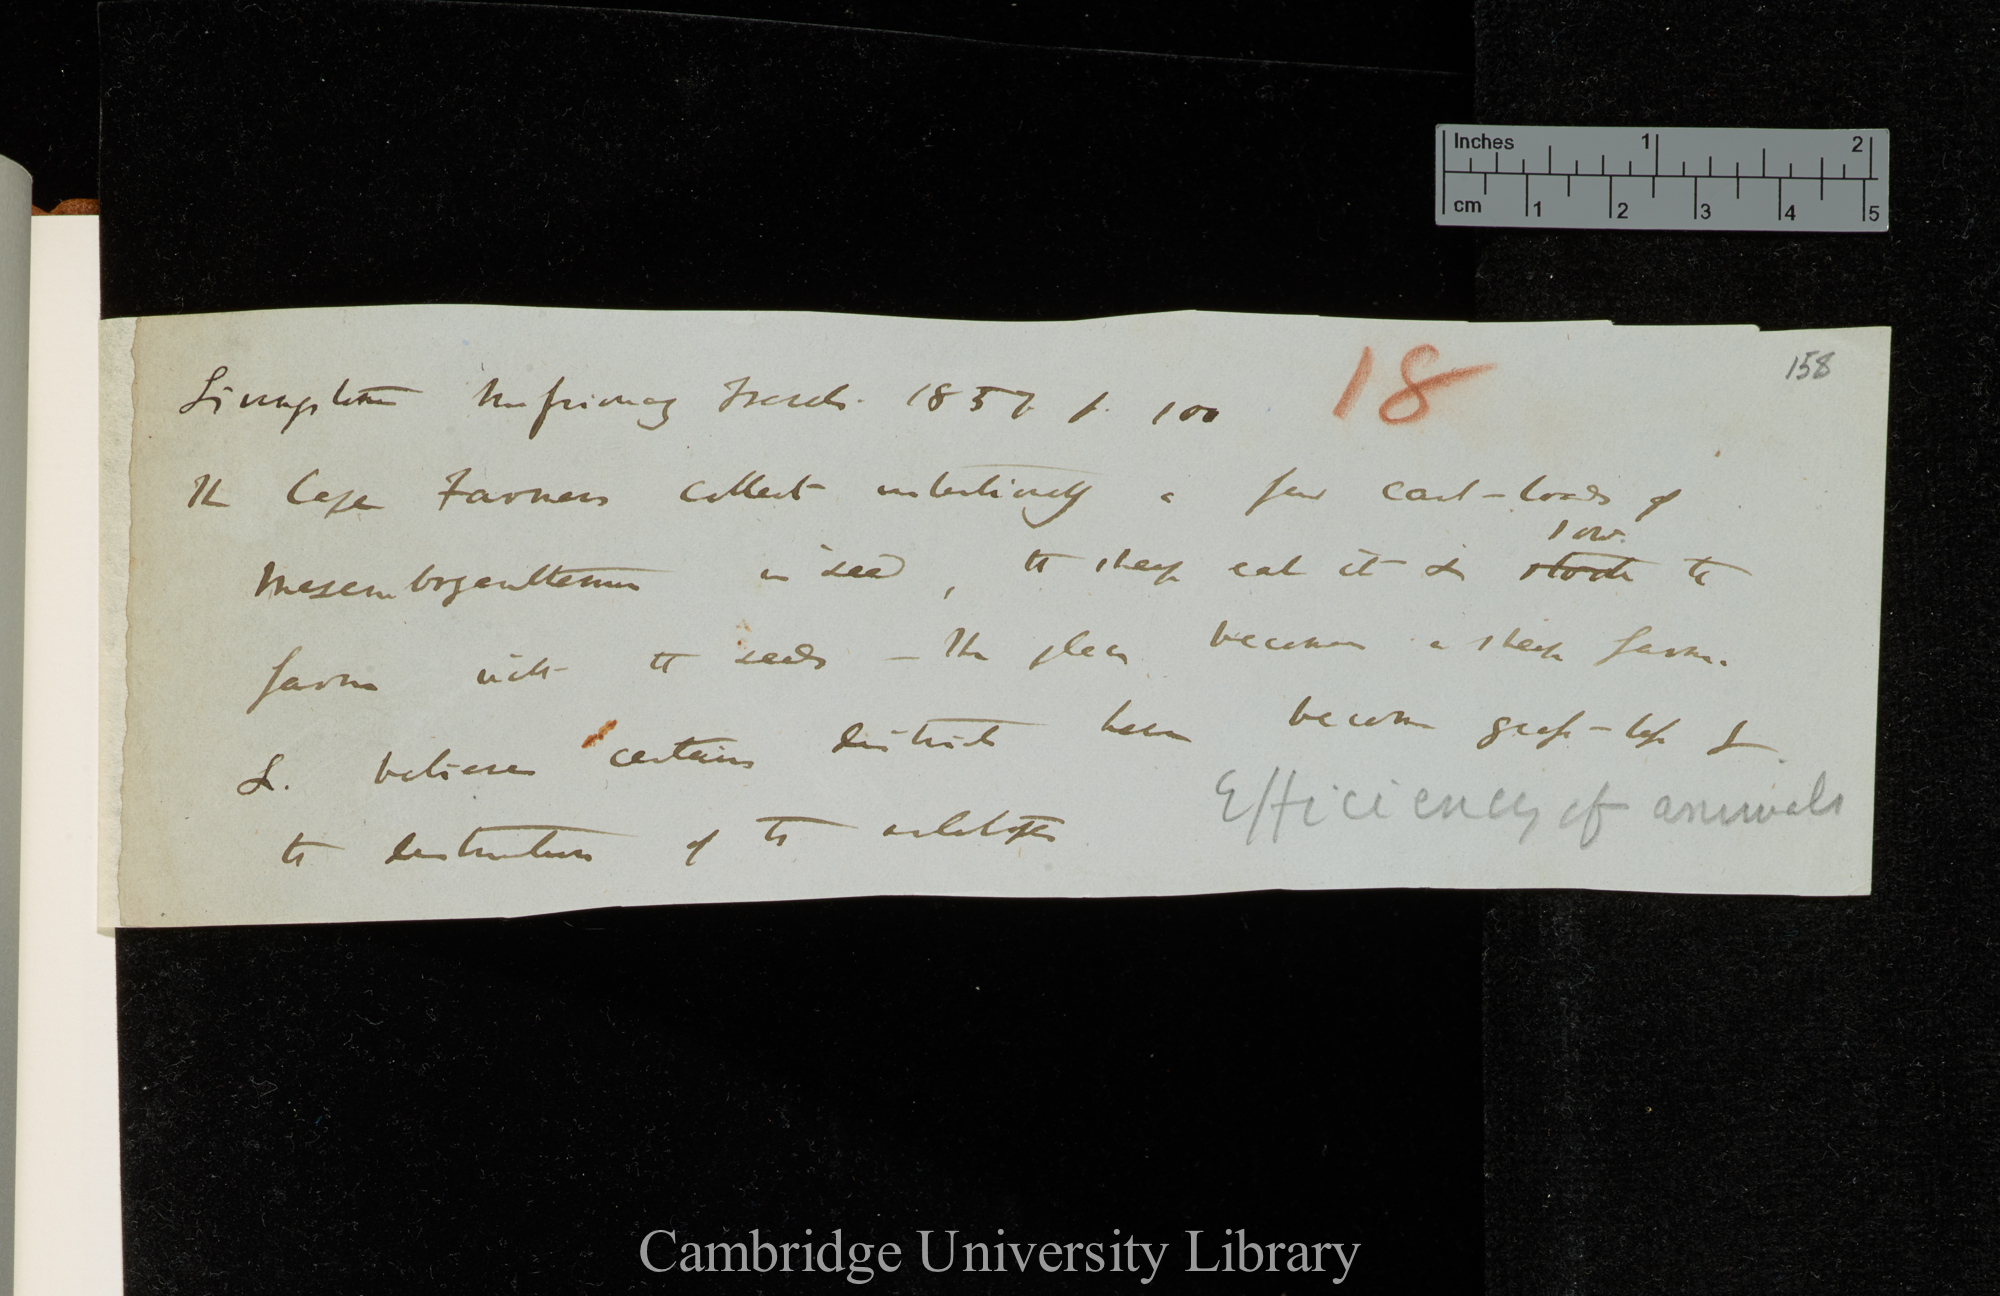 158
18
Livingstone Missionary Travels. 1857 p. 100
The Cape Farmers collect intentionally a few cart-loads of
Mesembryanthemum in seed, the sheep eat it & stock sow the
farm with the seeds — The place becomes a sheep farm.
L. believes certain districts have become grass-less from
the destruction of the antelopes
Efficiency of animals
Inches 1 2
cm 1 2 3 4 5
Cambridge University Library